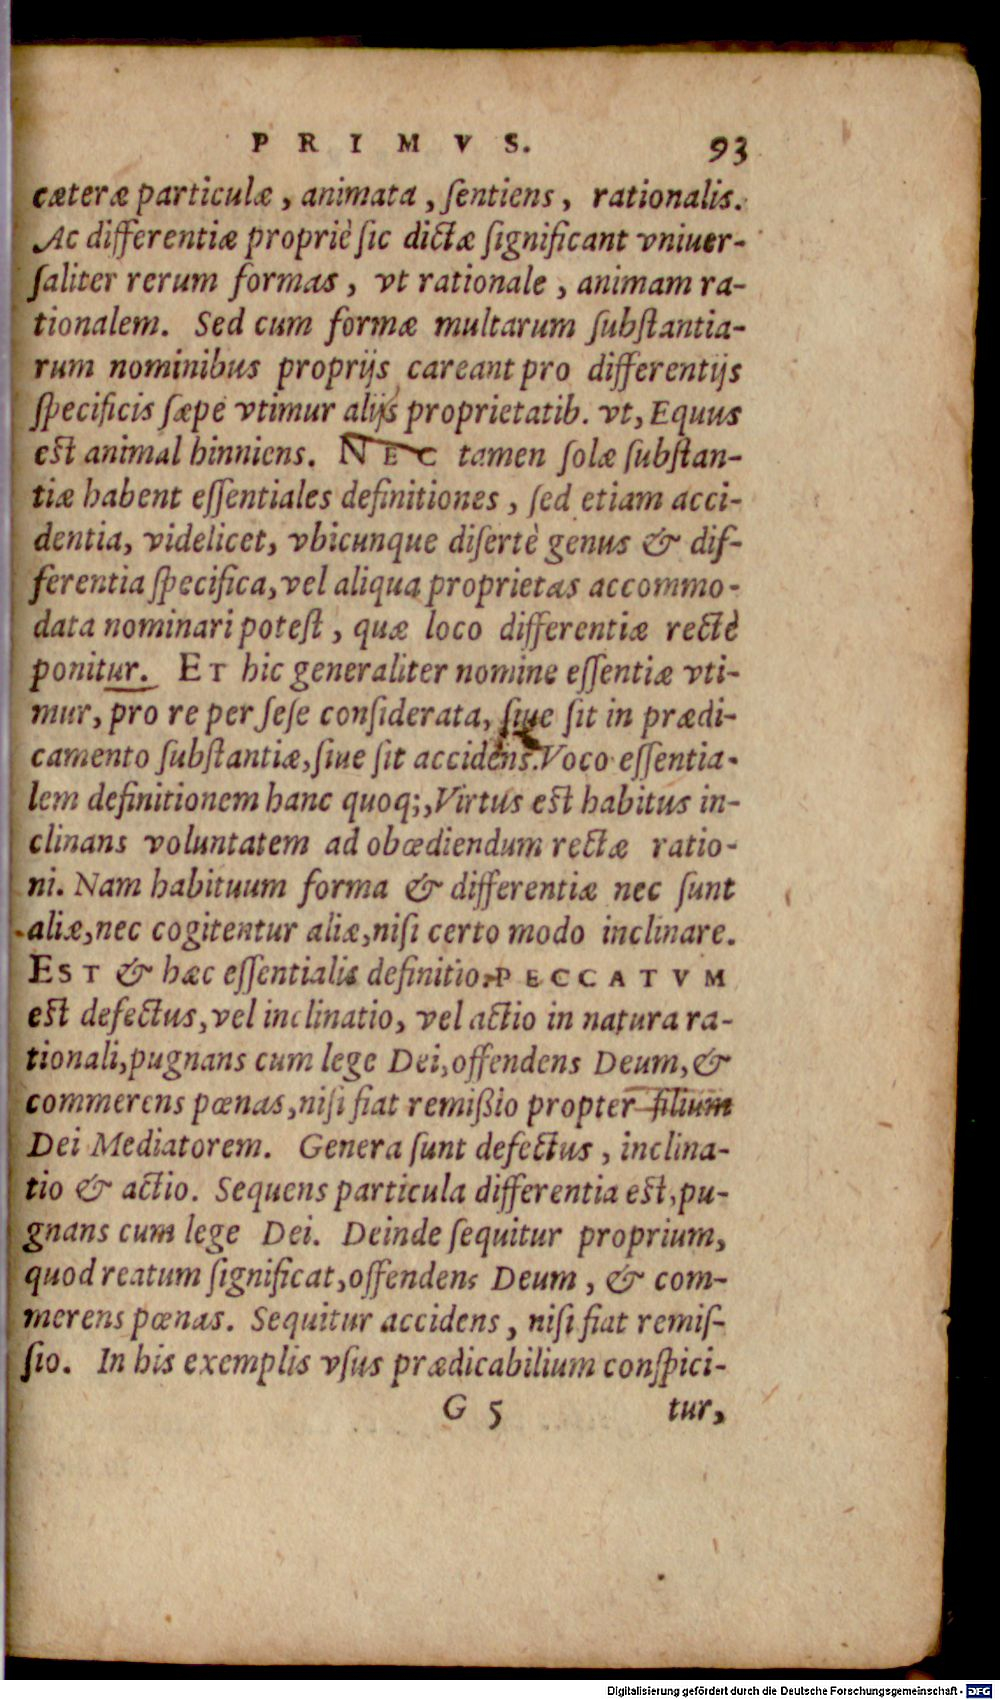 PRIMVS. 93
cæteræ particulæ, animata, ſentiens, rationalis.
Ac differentiæ propriè ſic dictæ ſignificant vniuer-
ſaliter rerum formas, vt rationale, animam ra-
tionalem. Sed cum formæ multarum ſubſtantia-
rum nominibus proprijs careant pro differentijs
ſpecificis ſæpe vtimur alijs proprietatib. vt, Equus
est animal hinniens. NEC tamen ſolæ ſubſtan-
tiæ habent eſſentiales definitiones, ſed etiam acci-
dentia, videlicet, vbicunque diſertè genus & dif-
ferentia ſpecifica, vel aliqua proprietas accommo-
data nominari poteſt, quæ loco differentiæ rectè
ponitur. ET hic generaliter nomine eſſentiæ vti-
mur, pro re per ſeſe conſiderata, ſiue ſit in prædi-
camento ſubſtantiæ, ſiue ſit accidens. Voco eſſentia-
lem definitionem hanc quoq;, Virtus est habitus in-
clinans voluntatem ad obœdiendum rectæ ratio-
ni. Nam habituum forma & differentiæ nec ſunt
aliæ, nec cogitentur aliæ, niſi certo modo inclinare.
EST & hæc eſſentialis definitio. PECCATVM
est defectus, vel inclinatio, vel actio in natura ra-
tionali, pugnans cum lege Dei, offendens Deum, &
commerens pœnas, niſi fiat remißio propter filium
Dei Mediatorem. Genera ſunt defectus, inclina-
tio & actio. Sequens particula differentia est, pu-
gnans cum lege Dei. Deinde ſequitur proprium,
quod reatum ſignificat, offendens Deum, & com-
merens pœnas. Sequitur accidens, niſi fiat remiſ-
ſio. In his exemplis vſus prædicabilium conſpici-
G 5 tur,
Digitalisierung gefördert durch die Deutsche Forschungsgemeinschaft - DFG